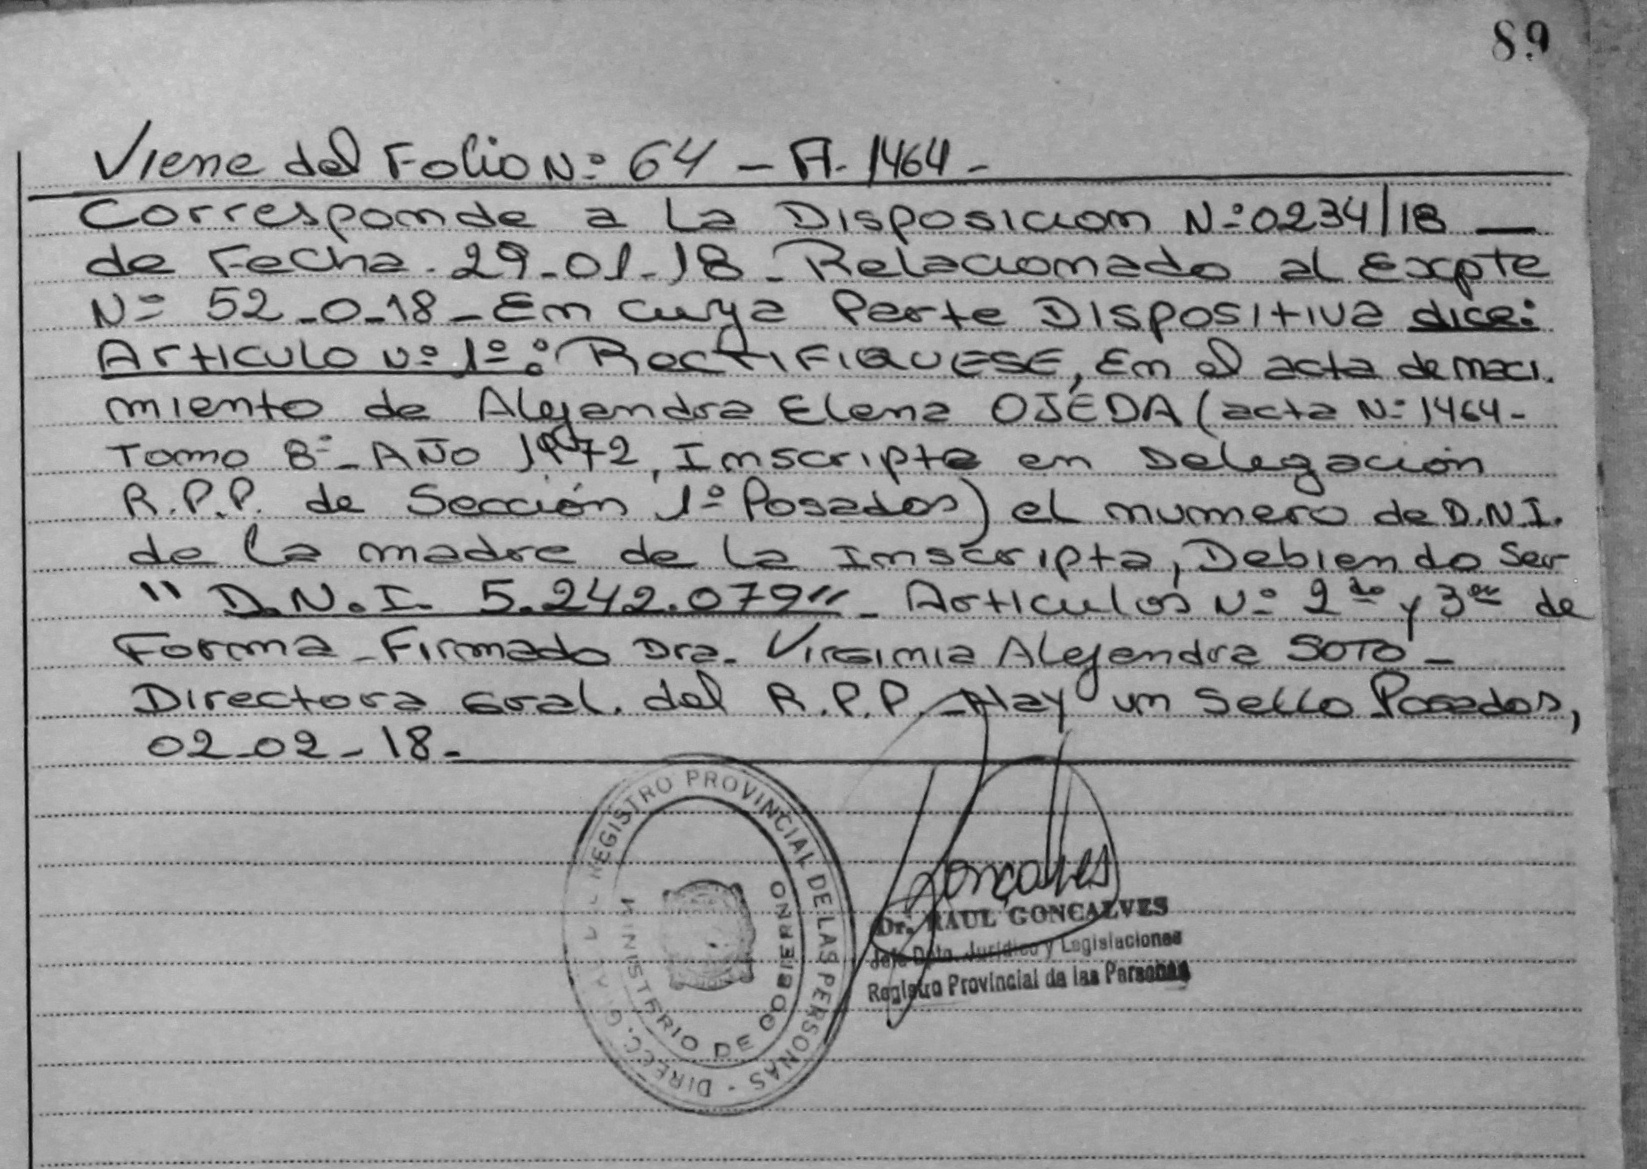 89
Viene del Folio N° 64 - A. 1464 -
Corresponde a la Disposicion N° 0234/18 —
de Fecha. 29-01-18 - Relacionado al Expte
N° 52-0-18 - En cuya Parte Dispositiva dice:
Articulo N° 1°: RECTIFIQUESE, En el acta de naci.
miento de Alejandra Elena OJEDA (acta N° 1464 -
Tomo 8° - AÑO 1972, Inscripta en Delegación
R.P.P. de Sección 1° Posadas) el numero de D.N.I.
de la madre de la Inscripta, Debiendo Ser
" D.N.I. 5.242.079" - Articulos N° 2do y 3er de
Forma - Firmado Dra. Virginia Alejandra SOTO -
Directora Gral. del R.P.P. - Hay un Sello Posadas,
02-02-18 -
DIRECC. GRAL. DEL REGISTRO PROVINCIAL DE LAS PERSONAS -
MINISTERIO DE GOBIERNO
Goncalves
Dr. RAUL GONCALVES
Jefe Dpto. Jurídico y Legislaciones
Registro Provincial de las Personas